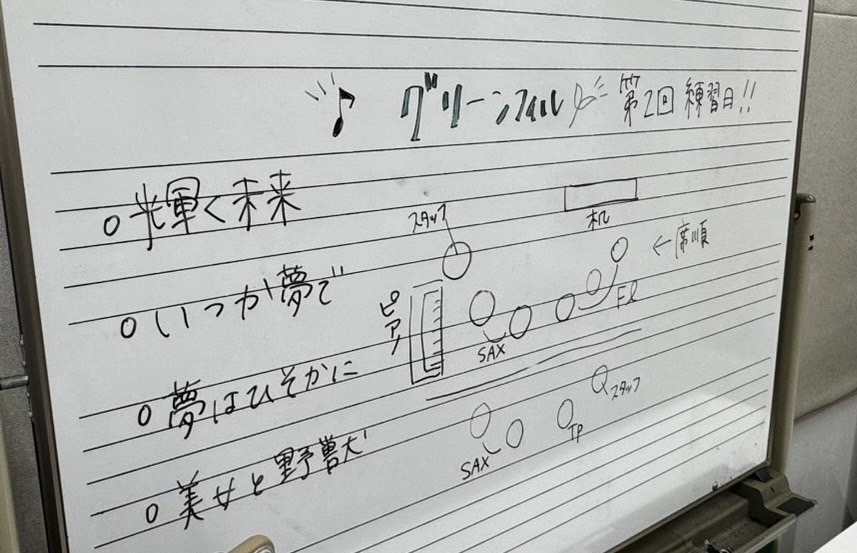 ♪ グリーンフィル♪ 第2回 練習日!!
○輝く未来
○いつか夢で
○夢はひそかに
○美女と野獣
スタッフ
机
←席順
ピアノ
SAX
Fl
スタッフ
SAX
Tp